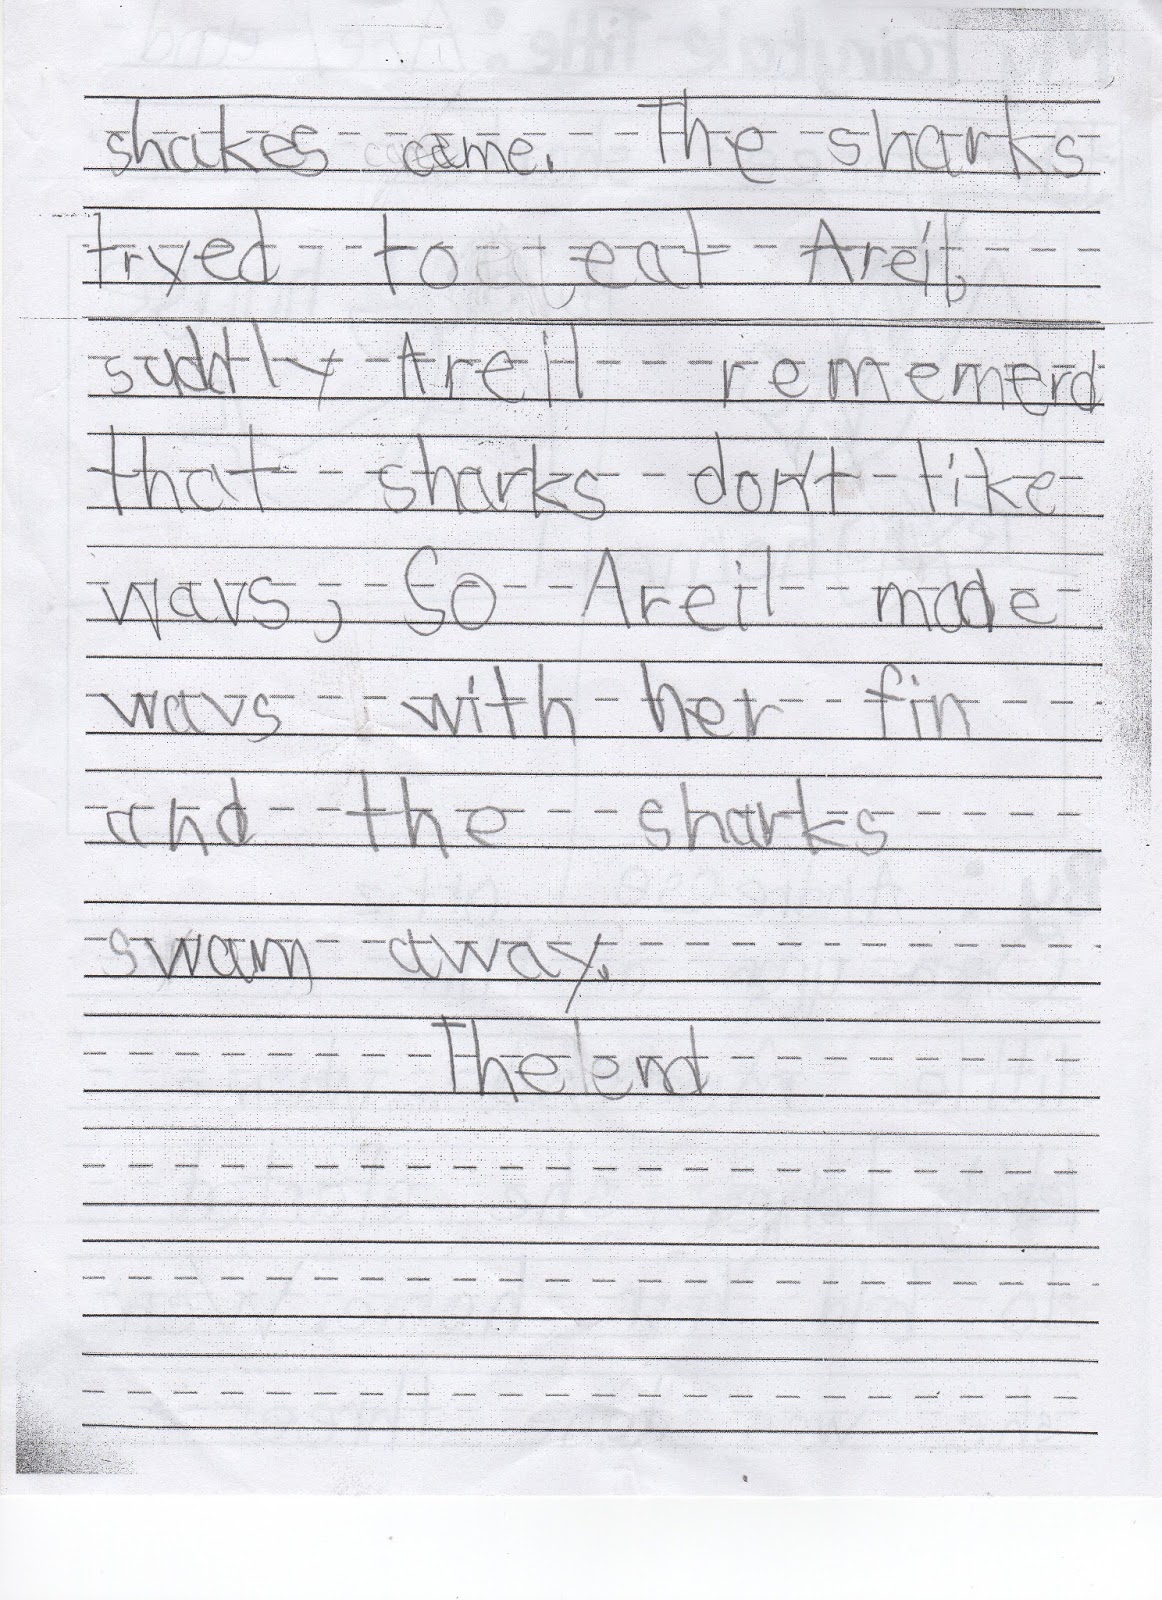 shakes came. The sharks
tryed to eat Areil.
suddly Areil rememerd
that sharks don't like
wavs, So Areil made
wavs with her fin
and the sharks
swam away.
The end